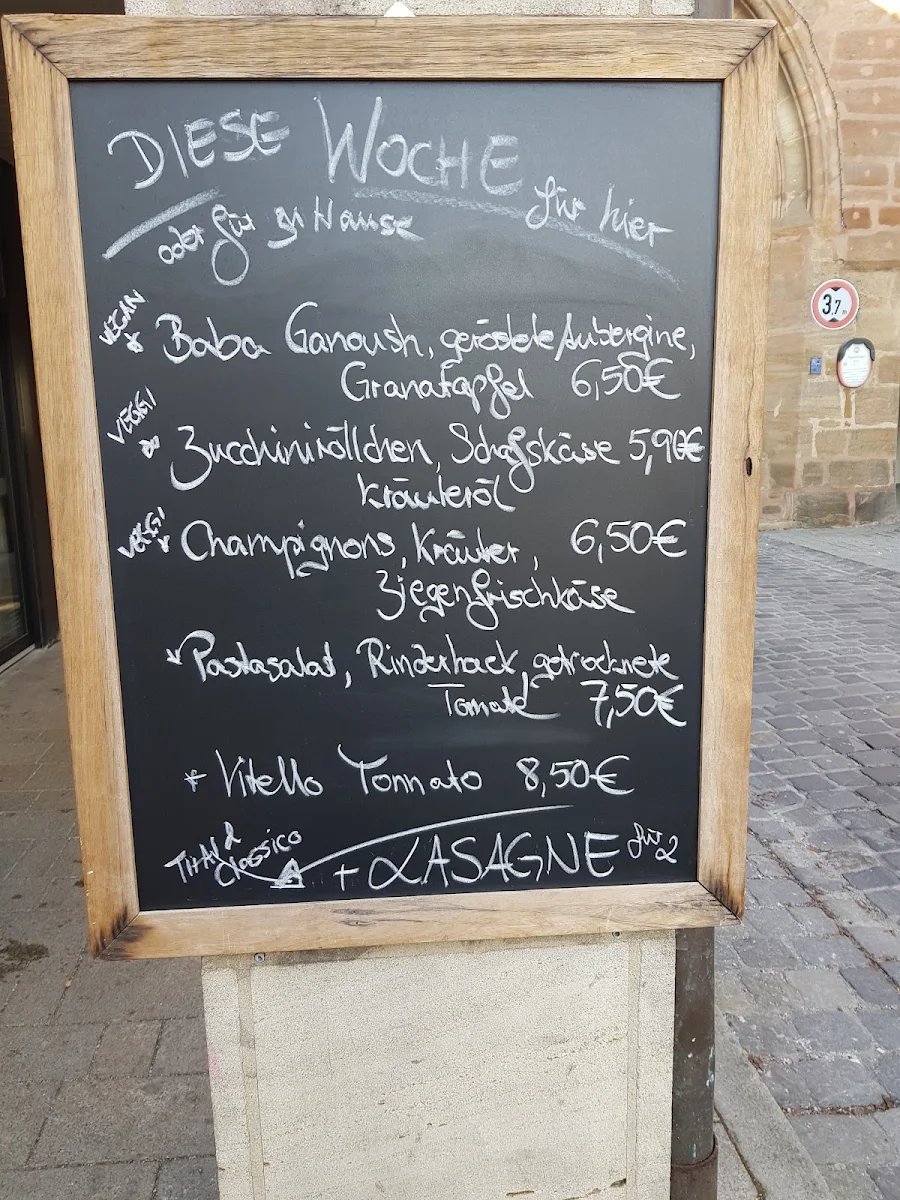 DIESE WOCHE
für hier
oder für zu Hause
VEGAN
Baba Ganoush, geröstete Aubergine,
Granatapfel 6,50€
VEGGI
Zucchiniröllchen, Schafskäse 5,90€
Kräuteröl
VEGGI
Champignons, Kräuter, 6,50€
Ziegenfrischkäse
Pastasalat, Rinderhack, getrocknete
Tomate 7,50€
+ Vitello Tonnato 8,50€
THAI & Classico
+ LASAGNE für 2
3,7m